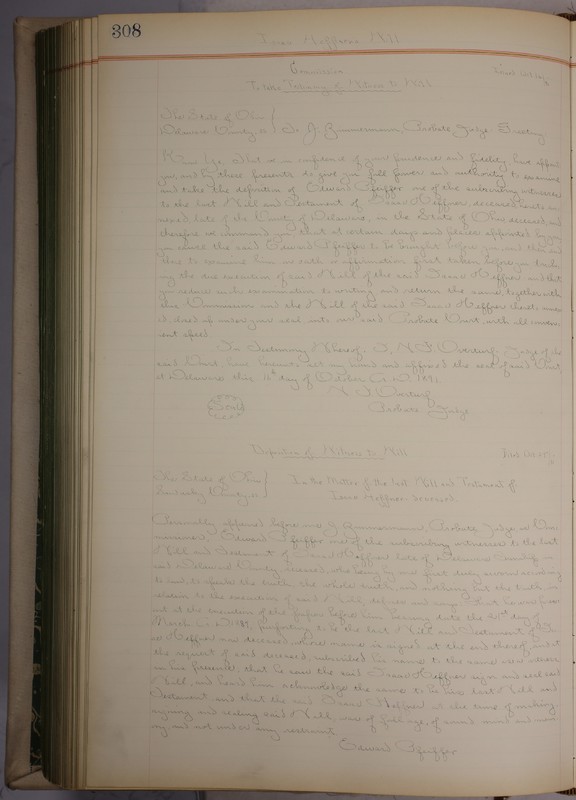 308
Isaac Heffner Will
Commission
To take Testimony of Witness to Will
The State of Ohio
Delaware County, ss To J. Zimmermann, Probate Judge Greeting
Know ye, that we in confidence of your prudence and fidelity, have appoint
you, and by these presents do give you full power and authority to examine
and take the deposition of Edward Pfeiffer one of the subscribing witnesses
to the last Will and Testament of Isaac Heffner, deceased
late of the County of Delaware, in the State of Ohio deceased, and
therefore we command you that at certain days and places appointed by
you cause the said Edward Pfeiffer to be brought before you and then and
there to examine him on oath or affirmation first taken before you touch-
ing the due execution of said Will of the said Isaac Heffner and that
you reduce such examination to writing and return the same together with
this Commission and the Will of the said Isaac Heffner hereto
closed up under your seal into our said Probate Court, with all conven-
ient speed
In Testimony Whereof, I, N. F. Overturf, Judge of the
said Court, have hereunto set my hand and affixed the seal of said Court
at Delaware this day of October A. D. 1891.
N. F. Overturf
Seal
Probate Judge
Deposition of Witness to Will
The State of Ohio
Sandusky County, ss
In the Matter of the last Will and Testament of
Isaac Heffner deceased.
Personally appeared before me J. Zimmermann, Probate Judge as Com-
missioner, Edward Pfeiffer one of the subscribing witnesses to the last
Will and Testament of Isaac Heffner late of Delaware Township in
said Delaware County, deceased, who being by me first duly sworn according
to law, to speak the truth, the whole truth, and nothing but the truth, in
relation to the execution of said Will, deposes and says: That he was pres-
ent at the execution of the paper before him bearing date the day of
March A. D. purporting to be the last Will and Testament of Isa-
ac Heffner now deceased, whose name is signed at the end thereof, and at
the request of said deceased, subscribed his name to the same as a witness
in his presence, that he saw the said Isaac Heffner sign and seal said
Will, and heard him acknowledge the same to be his last Will and
Testament and that the said Isaac Heffner at the time of making
signing and sealing said Will, was of full age, of sound mind and mem-
ory and not under any restraint.
Edward Pfeiffer